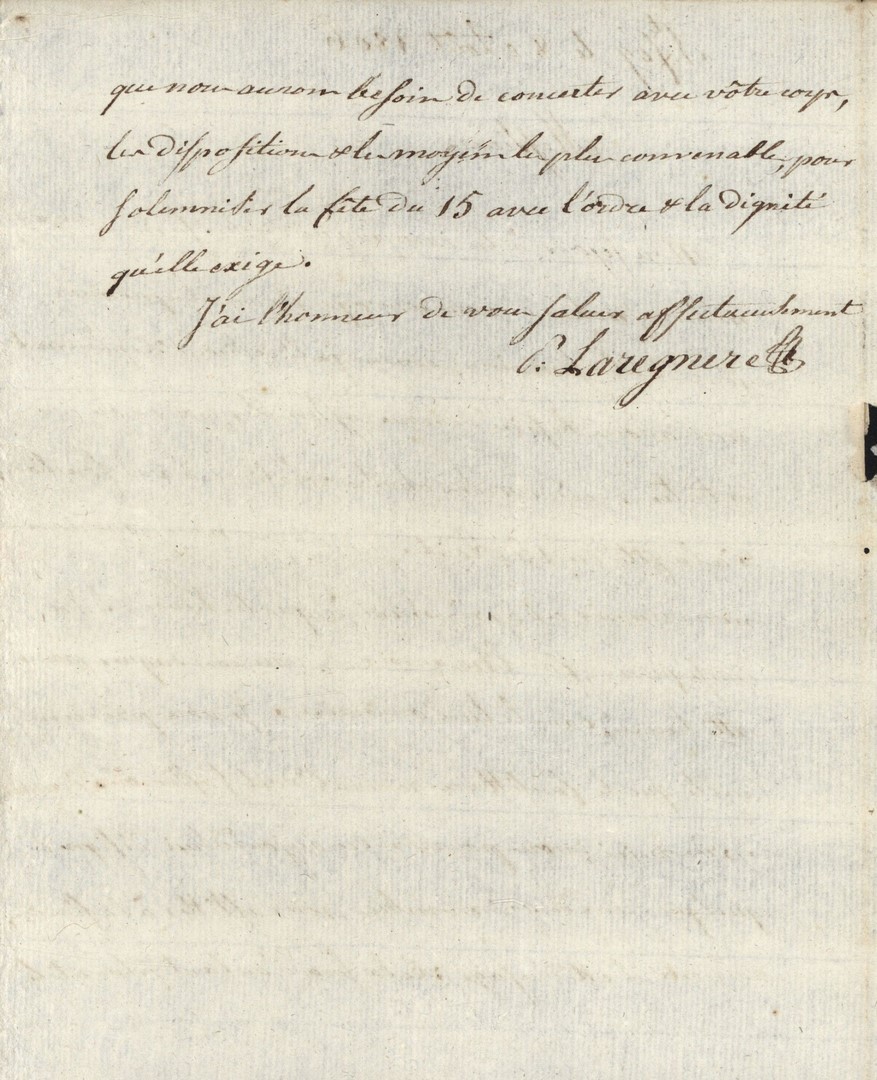 que nous aurons besoin de concerter avec vôtre corps,
les dispositions & les moyens les plus convenables, pour
solemniser la fête du 15 avec l'ordre & la dignité
qu'elle exige.
J'ai l'honneur de vous saluer affectueusement
P: Laregnere